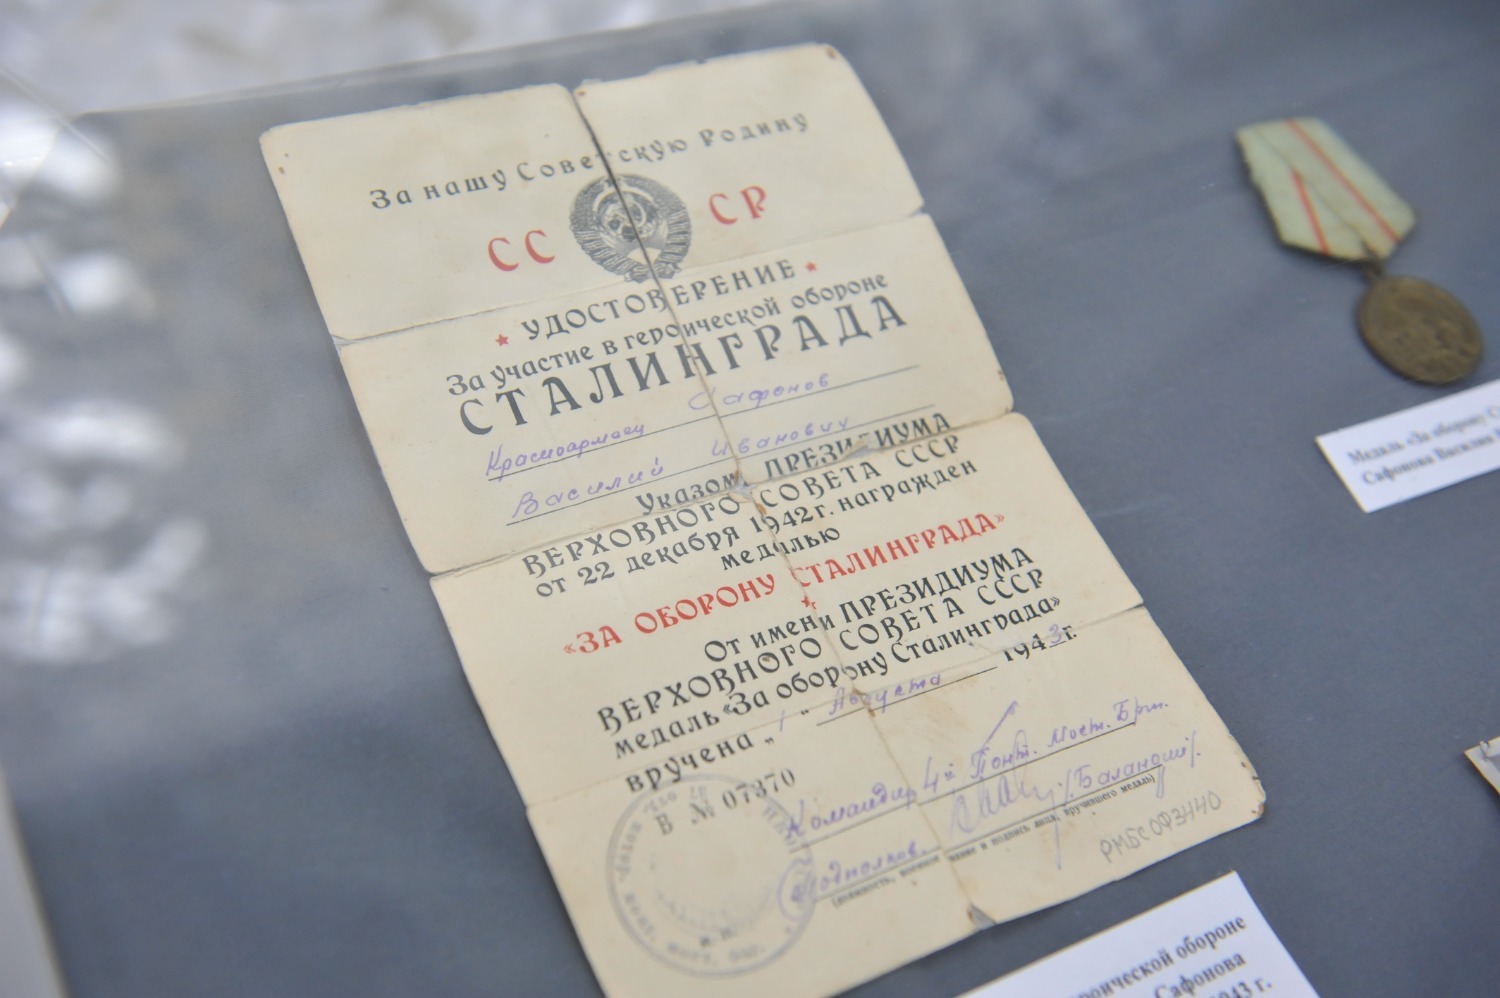 За нашу Советскую Родину
СССР
УДОСТОВЕРЕНИЕ
За участие в героической обороне
СТАЛИНГРАДА
Красноармеец Сафонов
Василий Иванович
Указом ПРЕЗИДИУМА
ВЕРХОВНОГО СОВЕТА СССР
от 22 декабря 1942 г. награжден
медалью
«ЗА ОБОРОНУ СТАЛИНГРАДА»
От имени ПРЕЗИДИУМА
ВЕРХОВНОГО СОВЕТА СССР
медаль «За оборону Сталинграда»
вручена „1“ Августа 1943 г.
В № 07370
Командир 4й Понт. Мост. Бриг.
Подполков. /Баланош/.
(должность, военное звание и подпись лица, вручившего медаль)
Медаль «За оборону С
Сафонова Василия
роической обороне
Сафонова
1943 г.